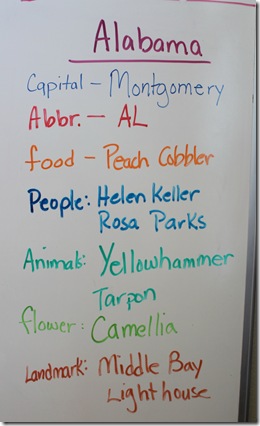 Alabama
Capital - Montgomery
Abbr. - AL
food - Peach Cobbler
People: Helen Keller
Rosa Parks
Animals: Yellowhammer
Tarpon
flower: Camellia
Landmark: Middle Bay
Lighthouse